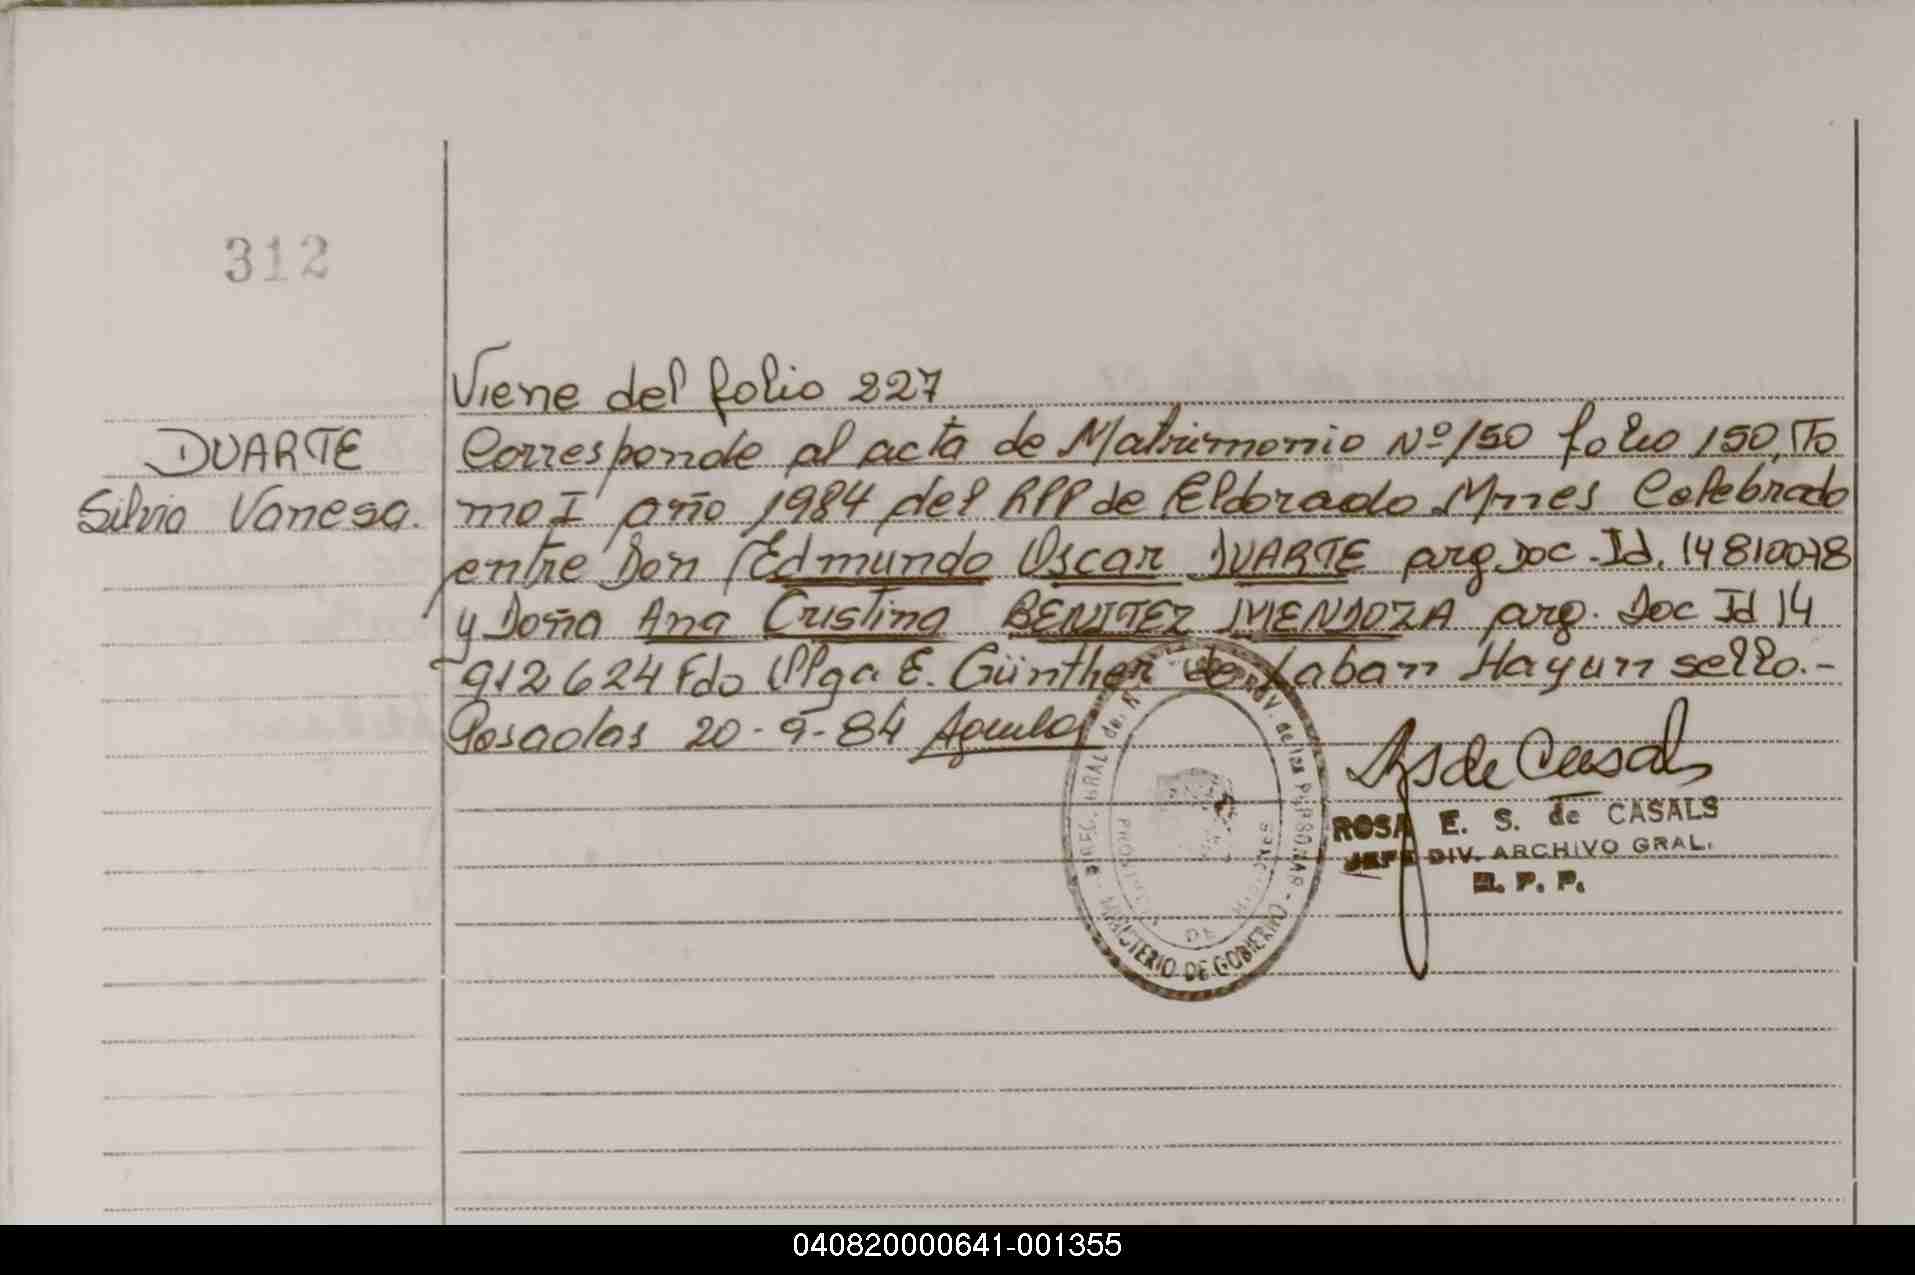 312
Viene del folio 227
DUARTE
Silvia Vanesa.
Corresponde al acta de Matrimonio Nº 150 folio 150, To
mo I año 1984 del RPP de Eldorado Mnes Celebrado
entre Don Edmundo Oscar DUARTE arg Doc. Id. 14810078
y Doña Ana Cristina BENITEZ MENDOZA arg. Doc Id 14
912624 Fdo Olga E. Günther de Laban Hay un sello.-
Posadas 20-9-84
de Casals
ROSA E. S. de CASALS
JEFE DIV. ARCHIVO GRAL.
R. P. P.
DIREC. GRAL de. de las PERSONAS - MINISTERIO DE GOBIERNO
PROVINCIA DE MISIONES
040820000641-001355